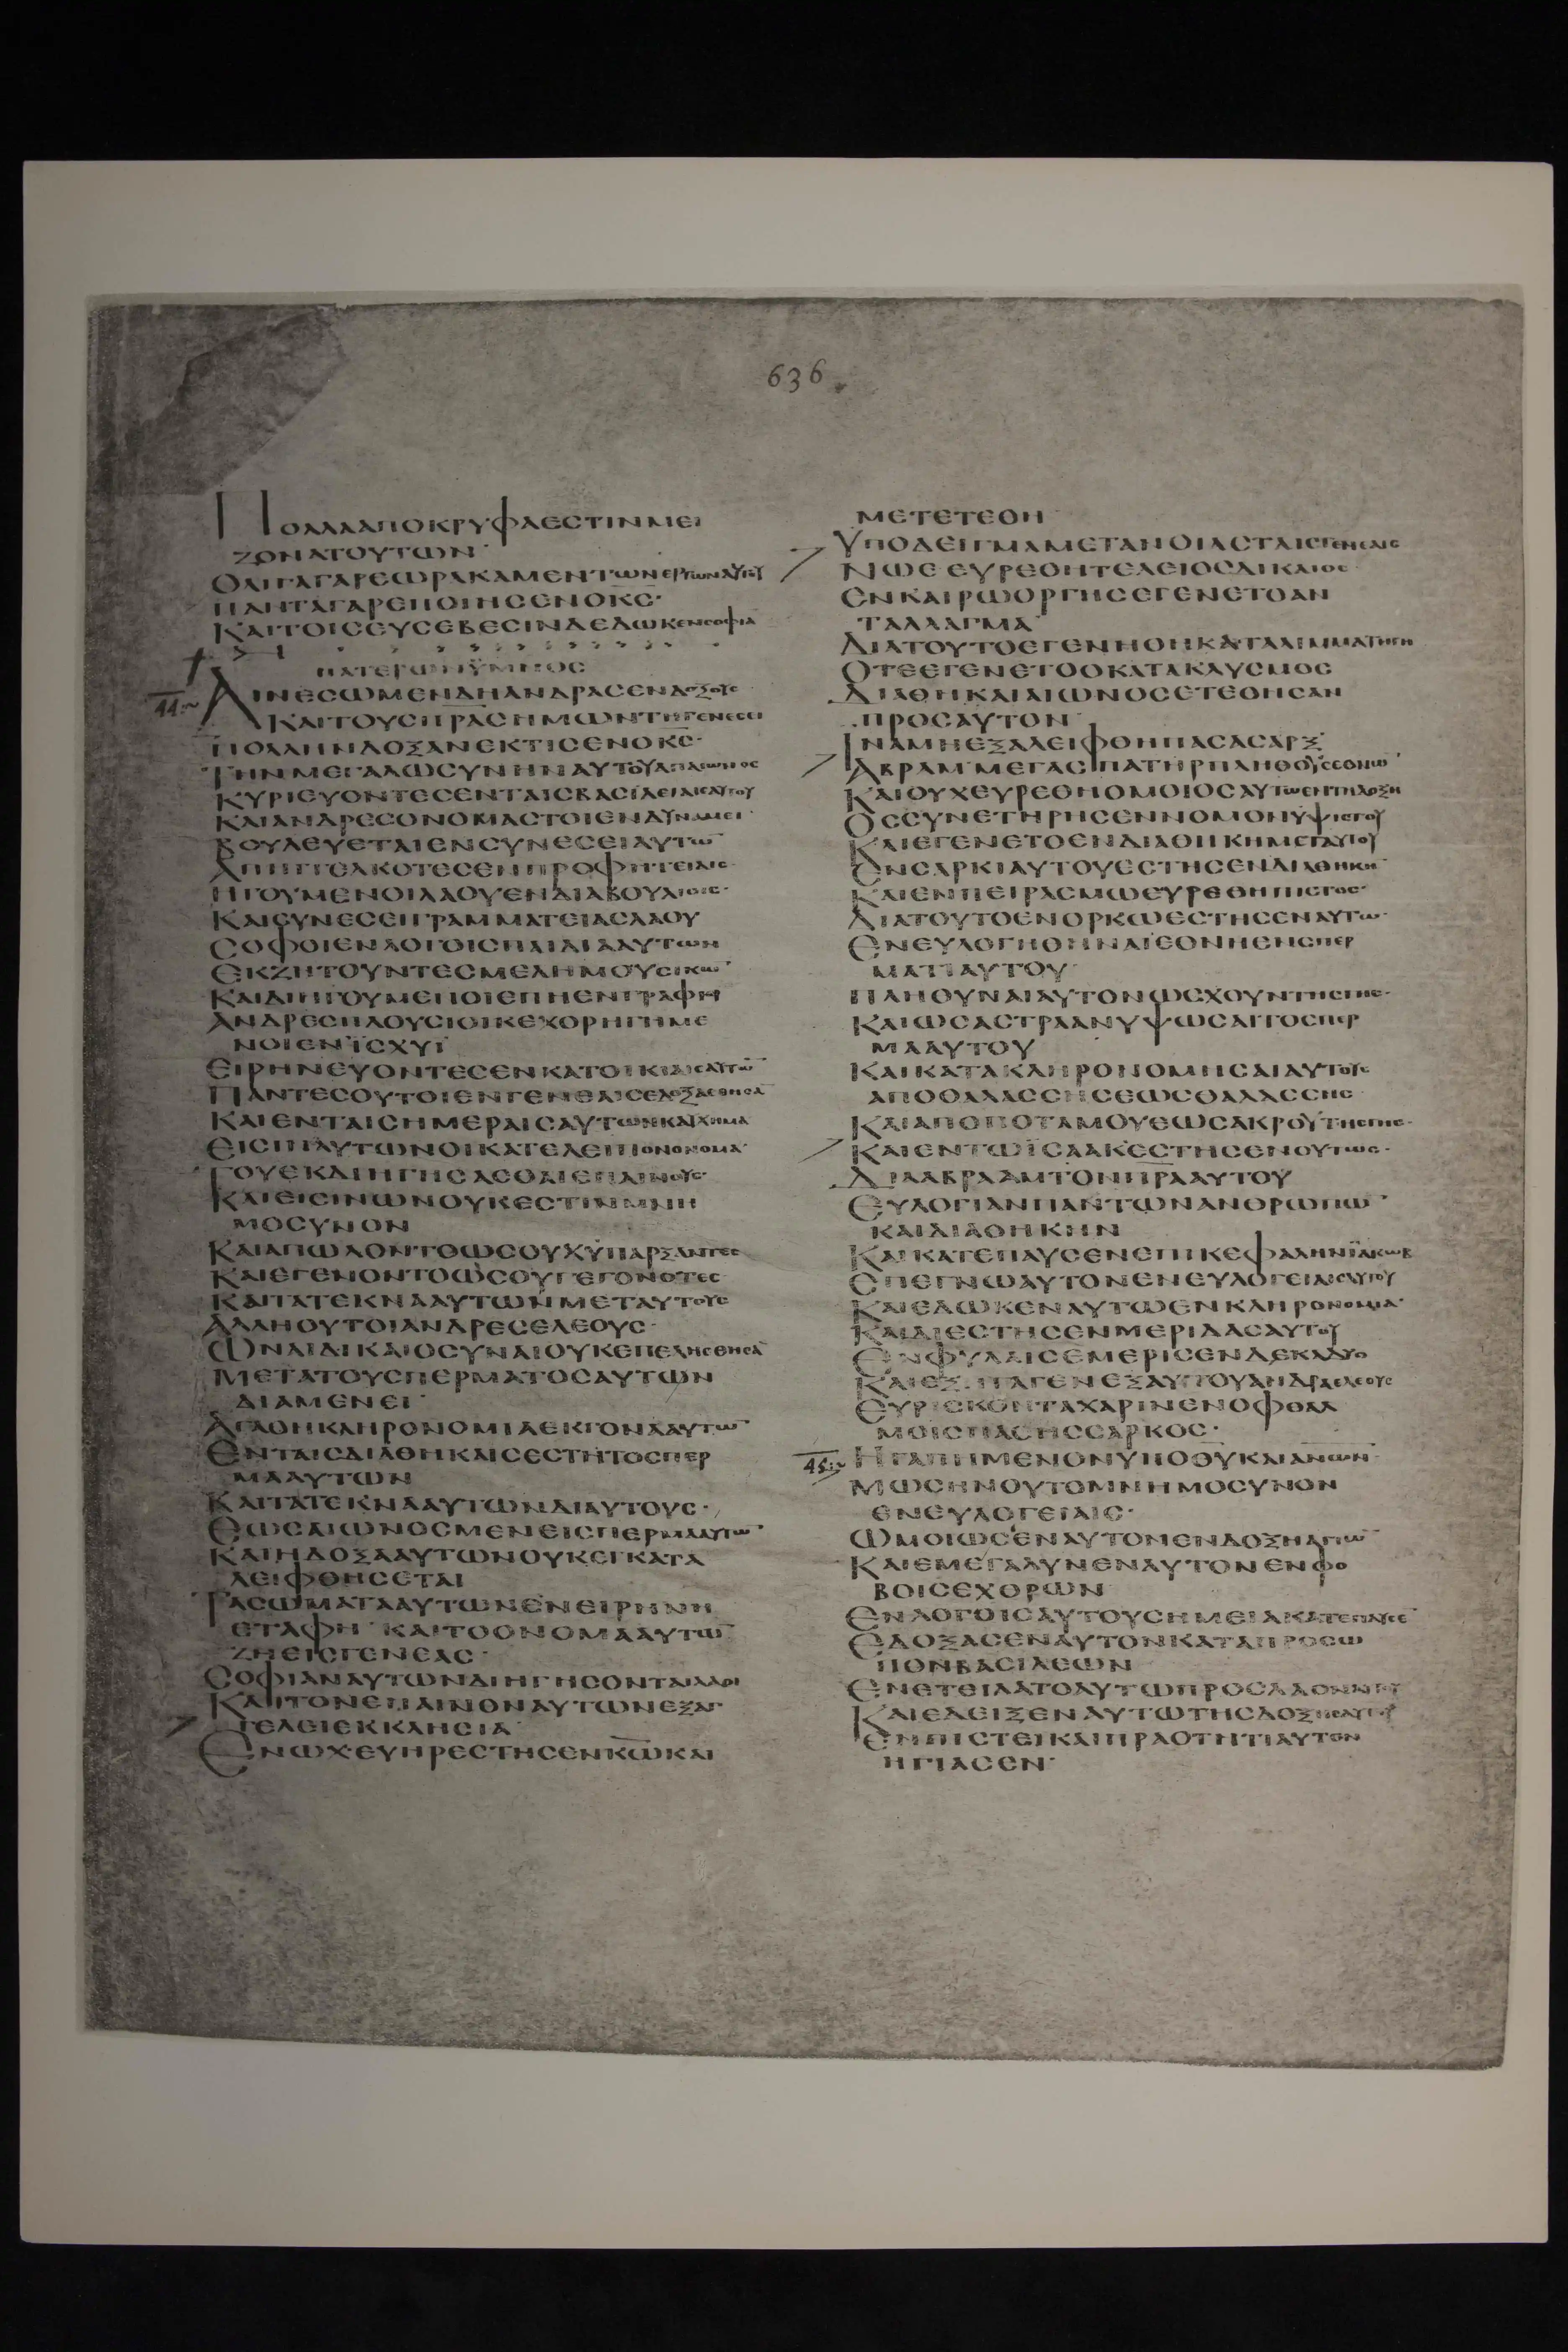 636
ΠΟΛΛΑΑΠΟΚΡΥΦΑΕΣΤΙΝΜΕΙ
ΖΟΝΑΤΟΥΤΩΝ·
ΟΛΙΓΑΓΑΡΕΩΡΑΚΑΜΕΝΤΩΝΕΡΓΩΝΑΥΤΟΥ
ΠΑΝΤΑΓΑΡΕΠΟΙΗΣΕΝΟΚΣ·
ΚΑΙΤΟΙΣΕΥΣΕΒΕΣΙΝΔΕΔΩΚΕΝΣΟΦΙΑ
ΠΑΤΕΡΩΝΫΜΝΟΣ
44
ΑΙΝΕΣΩΜΕΝΔΗΑΝΔΡΑΣΕΝΔΟΞΟΥΣ·
ΚΑΙΤΟΥΣΠΡΑΣΗΜΩΝΤΗΓΕΝΕΣΕΙ
ΠΟΛΛΗΝΔΟΞΑΝΕΚΤΙΣΕΝΟΚΣ·
ΤΗΝΜΕΓΑΛΩΣΥΝΗΝΑΥΤΟΥΑΠΑΙΩΝΟΣ
ΚΥΡΙΕΥΟΝΤΕΣΕΝΤΑΙΣΒΑΣΙΛΕΙΑΙΣΑΥΤΟΥ
ΚΑΙΑΝΔΡΕΣΟΝΟΜΑΣΤΟΙΕΝΔΥΝΑΜΕΙ·
ΒΟΥΛΕΥΕΤΑΙΕΝΣΥΝΕΣΕΙΑΥΤΩ
ΑΠΗΓΓΕΛΚΟΤΕΣΕΝΠΡΟΦΗΤΕΙΑΙΣ·
ΗΓΟΥΜΕΝΟΙΛΑΟΥΕΝΔΙΑΒΟΥΛΙΟΙΣ·
ΚΑΙΣΥΝΕΣΕΙΓΡΑΜΜΑΤΕΙΑΣΛΑΟΥ
ΣΟΦΟΙΕΝΛΟΓΟΙΣΠΑΙΔΙΑΑΥΤΩΝ
ΕΚΖΗΤΟΥΝΤΕΣΜΕΛΗΜΟΥΣΙΚΩ·
ΚΑΙΔΙΗΓΟΥΜΕΝΟΙΕΠΗΕΝΓΡΑΦΗ
ΑΝΔΡΕΣΠΛΟΥΣΙΟΙΚΕΧΟΡΗΓΗΜΕ
ΝΟΙΕΝΪΣΧΥΪ
ΕΙΡΗΝΕΥΟΝΤΕΣΕΝΚΑΤΟΙΚΙΑΙΣΑΥΤΩ
ΠΑΝΤΕΣΟΥΤΟΙΕΝΓΕΝΕΑΙΣΕΔΟΞΑΣΘΗΣΑ
ΚΑΙΕΝΤΑΙΣΗΜΕΡΑΙΣΑΥΤΩΝΚΑΥΧΗΜΑ
ΕΙΣΙΝΑΥΤΩΝΟΙΚΑΤΕΛΕΙΠΟΝΟΝΟΜΑ·
ΤΟΥΕΚΔΙΗΓΗΣΑΣΘΑΙΕΠΑΙΝΟΥΣ·
ΚΑΙΕΙΣΙΝΩΝΟΥΚΕΣΤΙΝΜΝΗ
ΜΟΣΥΝΟΝ
ΚΑΙΑΠΩΛΟΝΤΟΩΣΟΥΧΥΠΑΡΞΑΝΤΕΣ
ΚΑΙΕΓΕΝΟΝΤΟΩΣΟΥΓΕΓΟΝΟΤΕΣ
ΚΑΙΤΑΤΕΚΝΑΑΥΤΩΝΜΕΤΑΥΤΟΥΣ
ΑΛΛΗΟΥΤΟΙΑΝΔΡΕΣΕΛΕΟΥΣ·
ΩΝΑΙΔΙΚΑΙΟΣΥΝΑΙΟΥΚΕΠΕΛΗΣΘΗΣΑ
ΜΕΤΑΤΟΥΣΠΕΡΜΑΤΟΣΑΥΤΩΝ
ΔΙΑΜΕΝΕΙ·
ΑΓΑΘΗΚΛΗΡΟΝΟΜΙΑΕΚΓΟΝΑΑΥΤΩ
ΕΝΤΑΙΣΔΙΑΘΗΚΑΙΣΕΣΤΗΤΟΣΠΕΡ
ΜΑΑΥΤΩΝ
ΚΑΙΤΑΤΕΚΝΑΑΥΤΩΝΔΙΑΥΤΟΥΣ·
ΕΩΣΑΙΩΝΟΣΜΕΝΕΙΣΠΕΡΜΑΑΥΤΩ·
ΚΑΙΗΔΟΞΑΑΥΤΩΝΟΥΚΕΓΚΑΤΑ
ΛΕΙΦΘΗΣΕΤΑΙ
ΤΑΣΩΜΑΤΑΑΥΤΩΝΕΝΕΙΡΗΝΗ
ΕΤΑΦΗ·ΚΑΙΤΟΟΝΟΜΑΑΥΤΩ
ΖΗΕΙΣΓΕΝΕΑΣ·
ΣΟΦΙΑΝΑΥΤΩΝΔΙΗΓΗΣΟΝΤΑΙΛΑΟΙ
ΚΑΙΤΟΝΕΠΑΙΝΟΝΑΥΤΩΝΕΞΑΓ
ΓΕΛΕΙΕΚΚΛΗΣΙΑ·
ΕΝΩΧ·ΕΥΗΡΕΣΤΗΣΕΝΚΩΚΑΙ
ΜΕΤΕΤΕΘΗ
ΥΠΟΔΕΙΓΜΑΜΕΤΑΝΟΙΑΣΤΑΙΣΓΕΝΕΑΙΣ
ΝΩΕ·ΕΥΡΕΘΗΤΕΛΕΙΟΣΔΙΚΑΙΟΣ·
ΕΝΚΑΙΡΩΟΡΓΗΣΕΓΕΝΕΤΟΑΝ
ΤΑΛΛΑΓΜΑ·
ΔΙΑΤΟΥΤΟΕΓΕΝΗΘΗΚΑΤΑΛΙΜΜΑΤΗΓΗ
ΟΤΕΕΓΕΝΕΤΟΟΚΑΤΑΚΛΥΣΜΟΣ
ΔΙΑΘΗΚΑΙΑΙΩΝΟΣΕΤΕΘΗΣΑΝ
ΠΡΟΣΑΥΤΟΝ·
ΙΝΑΜΗΕΞΑΛΕΙΦΘΗΠΑΣΑΣΑΡΞ·
ΑΒΡΑΜ·ΜΕΓΑΣΠΑΤΗΡΠΛΗΘΟΥΣΕΘΝΩ·
ΚΑΙΟΥΧΕΥΡΕΘΗΟΜΟΙΟΣΑΥΤΩΕΝΤΗΔΟΞΗ
ΟΣΣΥΝΕΤΗΡΗΣΕΝΝΟΜΟΝΥΨΙΣΤΟΥ
ΚΑΙΕΓΕΝΕΤΟΕΝΔΙΑΘΗΚΗΜΕΤΑΥΤΟΥ
ΕΝΣΑΡΚΙΑΥΤΟΥΕΣΤΗΣΕΝΔΙΑΘΗΚΗ·
ΚΑΙΕΝΠΕΙΡΑΣΜΩΕΥΡΕΘΗΠΙΣΤΟΣ·
ΔΙΑΤΟΥΤΟΕΝΟΡΚΩΕΣΤΗΣΕΝΑΥΤΩ·
ΕΝΕΥΛΟΓΗΘΗΝΑΙΕΘΝΗΕΝΣΠΕΡ
ΜΑΤΙΑΥΤΟΥ·
ΠΛΗΘΥΝΑΙΑΥΤΟΝΩΣΧΟΥΝΤΗΣΓΗΣ·
ΚΑΙΩΣΑΣΤΡΑΑΝΥΨΩΣΑΙΤΟΣΠΕΡ
ΜΑΑΥΤΟΥ
ΚΑΙΚΑΤΑΚΛΗΡΟΝΟΜΗΣΑΙΑΥΤΟΥΣ
ΑΠΟΘΑΛΑΣΣΗΣΕΩΣΘΑΛΑΣΣΗΣ
ΚΑΙΑΠΟΠΟΤΑΜΟΥΕΩΣΑΚΡΟΥΤΗΣΓΗΣ·
ΚΑΙΕΝΤΩΪΣΑΑΚΕΣΤΗΣΕΝΟΥΤΩΣ·
ΔΙΑΑΒΡΑΑΜΤΟΝΠΡΑΑΥΤΟΥ
ΕΥΛΟΓΙΑΝΠΑΝΤΩΝΑΝΘΡΩΠΩ·
ΚΑΙΔΙΑΘΗΚΗΝ
ΚΑΙΚΑΤΕΠΑΥΣΕΝΕΠΙΚΕΦΑΛΗΝΪΑΚΩΒ
ΕΠΕΓΝΩΑΥΤΟΝΕΝΕΥΛΟΓΕΙΑΙΣΑΥΤΟΥ
ΚΑΙΕΔΩΚΕΝΑΥΤΩΕΝΚΛΗΡΟΝΟΜΙΑ·
ΚΑΙΔΙΕΣΤΗΣΕΝΜΕΡΙΔΑΣΑΥΤΟΥ
ΕΝΦΥΛΑΙΣΕΜΕΡΙΣΕΝΔΕΚΑΔΥΟ
ΚΑΙΕΞΗΓΑΓΕΝΕΞΑΥΤΟΥΑΝΔΡΑΕΛΕΟΥΣ
ΕΥΡΙΣΚΟΝΤΑΧΑΡΙΝΕΝΟΦΘΑΛ
ΜΟΙΣΠΑΣΗΣΣΑΡΚΟΣ·
45
ΗΓΑΠΗΜΕΝΟΝΥΠΟΘΥΚΑΙΑΝΩΝ·
ΜΩΣΗΝΟΥΤΟΜΝΗΜΟΣΥΝΟΝ
ΕΝΕΥΛΟΓΕΙΑΙΣ·
ΩΜΟΙΩΣΕΝΑΥΤΟΝΕΝΔΟΞΗΑΓΙΩ
ΚΑΙΕΜΕΓΑΛΥΝΕΝΑΥΤΟΝΕΝΦΟ
ΒΟΙΣΕΧΘΡΩΝ
ΕΝΛΟΓΟΙΣΑΥΤΟΥΣΗΜΕΙΑΚΑΤΕΠΑΥΣΕ
ΕΔΟΞΑΣΕΝΑΥΤΟΝΚΑΤΑΠΡΟΣΩ
ΠΟΝΒΑΣΙΛΕΩΝ
ΕΝΕΤΕΙΛΑΤΟΑΥΤΩΠΡΟΣΛΑΟΝΑΥΤΟΥ
ΚΑΙΕΔΕΙΞΕΝΑΥΤΩΤΗΣΔΟΞΗΣΑΥΤΟΥ
ΕΝΠΙΣΤΕΙΚΑΙΠΡΑΟΤΗΤΙΑΥΤΟΝ
ΗΓΙΑΣΕΝ·